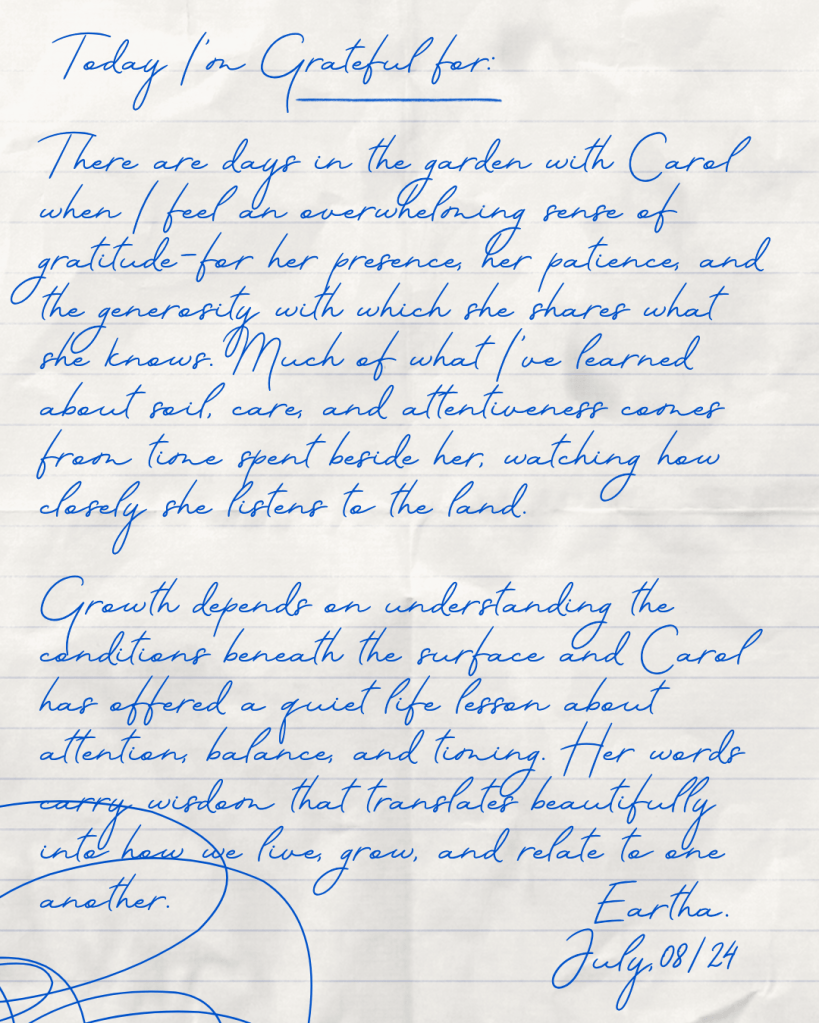 Today I'm Grateful for:
There are days in the garden with Carol
when I feel an overwhelming sense of
gratitude-for her presence, her patience, and
the generosity with which she shares what
she knows. Much of what I've learned
about soil, care, and attentiveness comes
from time spent beside her, watching how
closely she listens to the land.
Growth depends on understanding the
conditions beneath the surface and Carol
has offered a quiet life lesson about
attention, balance, and timing. Her words
carry wisdom that translates beautifully
into how we live, grow, and relate to one
another.
Eartha.
July, 08/24